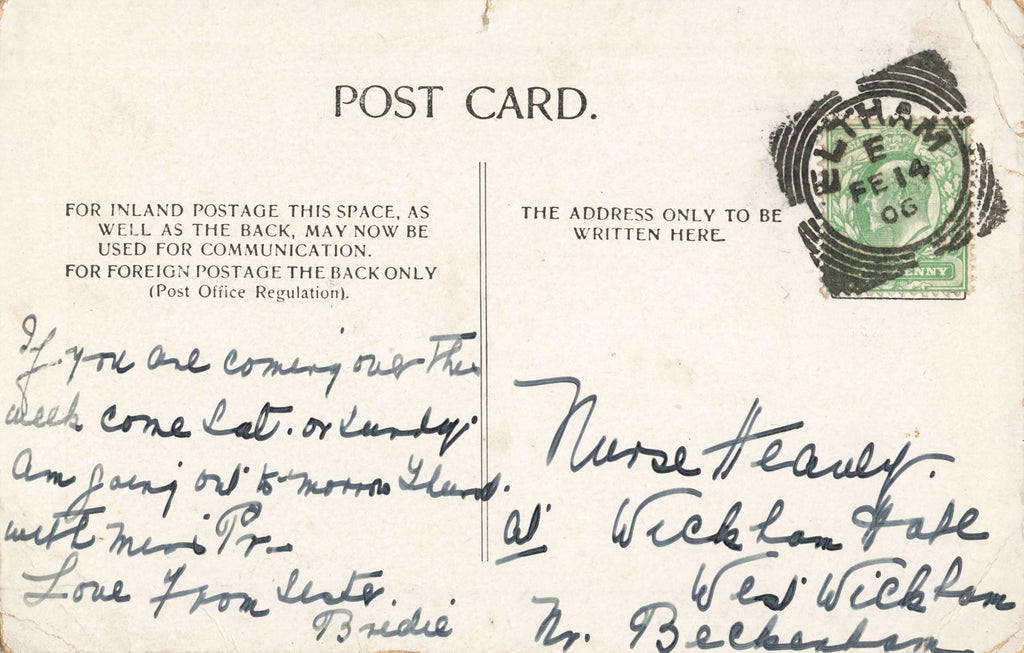 POST CARD.
FOR INLAND POSTAGE THIS SPACE, AS
WELL AS THE BACK, MAY NOW BE
USED FOR COMMUNICATION.
FOR FOREIGN POSTAGE THE BACK ONLY
(Post Office Regulation).
THE ADDRESS ONLY TO BE
WRITTEN HERE.
ELTHAM
E
FE 14
06
PENNY
If you are coming over this
week come Sat. or Sunday.
Am going out to-morrow Thurs.
with Miss Pr-
Love from Sister
Bridie
Nurse Heavey.
at Wickham Hall
West Wickham
Nr. Beckenham